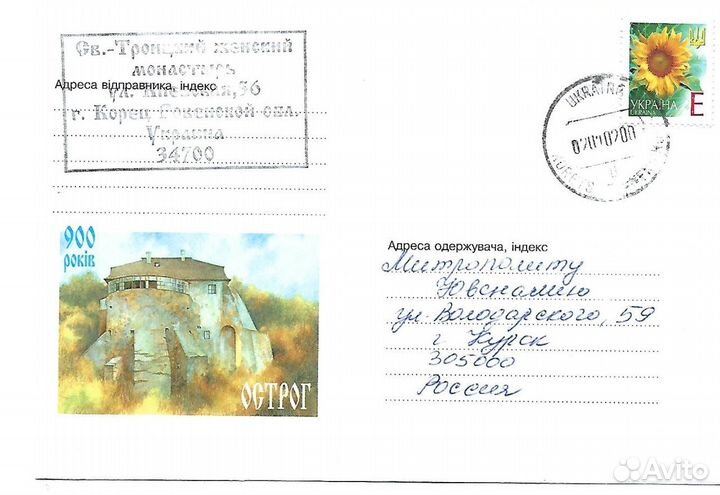 Св.-Троицкий женский
монастырь
Адреса відправника, індекс
ул. Киевская, 36
г. Корец Ровенской обл.
Украина
34700
УКРАЇНА
UKRAINA
E
UKRAINA
900
років
ОСТРОГ
Адреса одержувача, індекс
Митрополиту
Ювеналию
ул. Володарского, 59
г Курск
305000
Россия
Avito